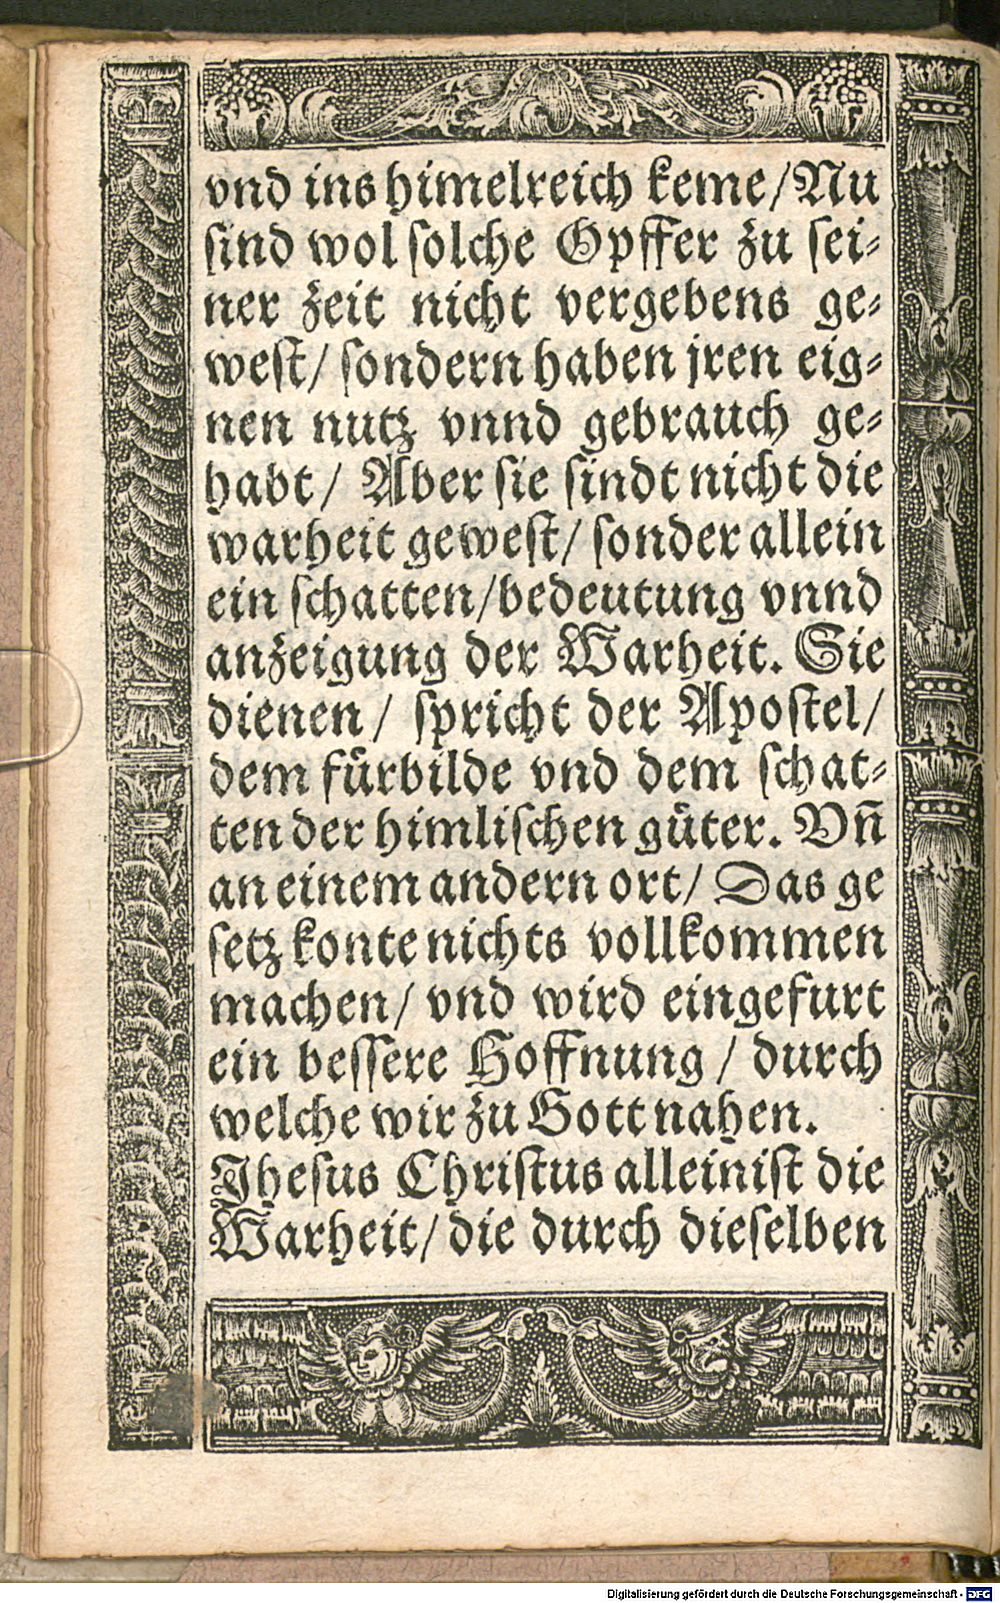 vnd ins himelreich keme/ Nu
sind wol solche Opffer zu sei⸗
ner zeit nicht vergebens ge⸗
west/ sondern haben jren eig⸗
nen nutz vnnd gebrauch ge⸗
habt/ Aber sie sindt nicht die
warheit gewest/ sonder allein
ein schatten/ bedeutung vnnd
anzeigung der Warheit. Sie
dienen/ spricht der Apostel/
dem fürbilde vnd dem schat⸗
ten der himlischen güter. Vn̄
an einem andern ort/ Das ge
setz konte nichts vollkommen
machen/ vnd wird eingefurt
ein bessere Hoffnung/ durch
welche wir zu Gott nahen.
Jhesus Christus allein ist die
Warheit/ die durch dieselben
Digitalisierung gefördert durch die Deutsche Forschungsgemeinschaft - DFG